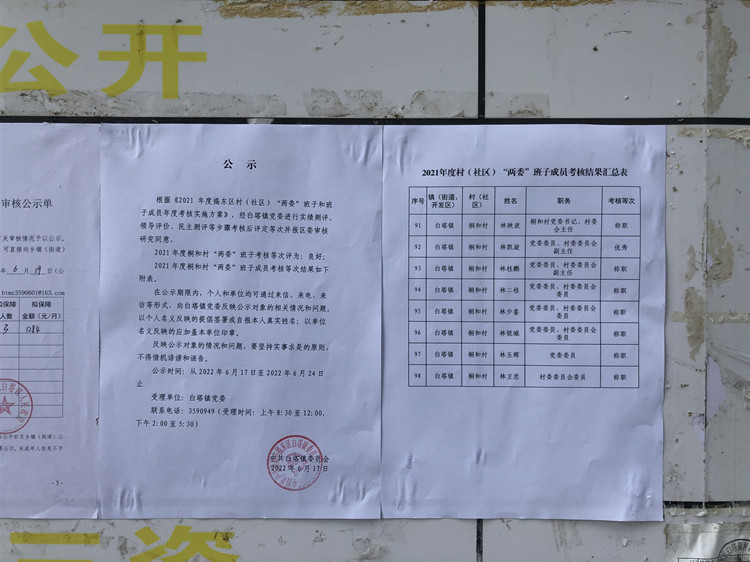 公开
审核公示单
关审核情况予以公示。
可直接向乡镇（街道）
年 6 月 19 日（公
btmz3590601@163.com
拟保障
人数
拟保障
金额（元/月）
3
1284
公开栏或乡镇（街道）公
-5-
公 示
根据《2021 年度揭东区村（社区）“两委”班子和班
子成员年度考核实施方案》，经白塔镇党委进行实绩测评、
领导评价、民主测评等步骤考核后评定等次并报区委审核
研究同意。
2021 年度桐和村“两委”班子考核等次评为：良好；
2021 年度桐和村“两委”班子成员考核等次结果如下
附表。
在公示期限内，个人和单位均可通过来信、来电、来
访等形式，向白塔镇党委反映公示对象的相关情况和问题，
以个人名义反映的提倡签署或自报本人真实姓名；以单位
名义反映的应加盖本单位印章。
反映公示对象的情况和问题，要坚持实事求是的原则，
不得借机诽谤和诬告。
公示时间：从 2022 年 6 月 17 日至 2022 年 6 月 24 日
止
受理单位：白塔镇党委
联系电话：3590949（受理时间：上午 8:30 至 12:00，
下午 2:00 至 5:30）
中共白塔镇委员会
2022 年 6 月 17 日
2021年度村（社区）“两委”班子成员考核结果汇总表
序号 镇（街道、开发区） 村（社区） 姓名 职务 考核等次
91 白塔镇 桐和村 林映波 桐和村党委书记、村委会主任 称职
92 白塔镇 桐和村 林凯旋 党委委员、村委委员会副主任 优秀
93 白塔镇 桐和村 林桂鹏 党委委员、村委委员会副主任 称职
94 白塔镇 桐和村 林二壮 党委委员、村委委员会委员 称职
95 白塔镇 桐和村 林少 党委委员、村委委员会委员 称职
96 白塔镇 桐和村 林 党委委员、村委委员会委员 称职
97 白塔镇 桐和村 林玉辉 党委委员 称职
98 白塔镇 桐和村 林卫忠 村委委员会委员 称职